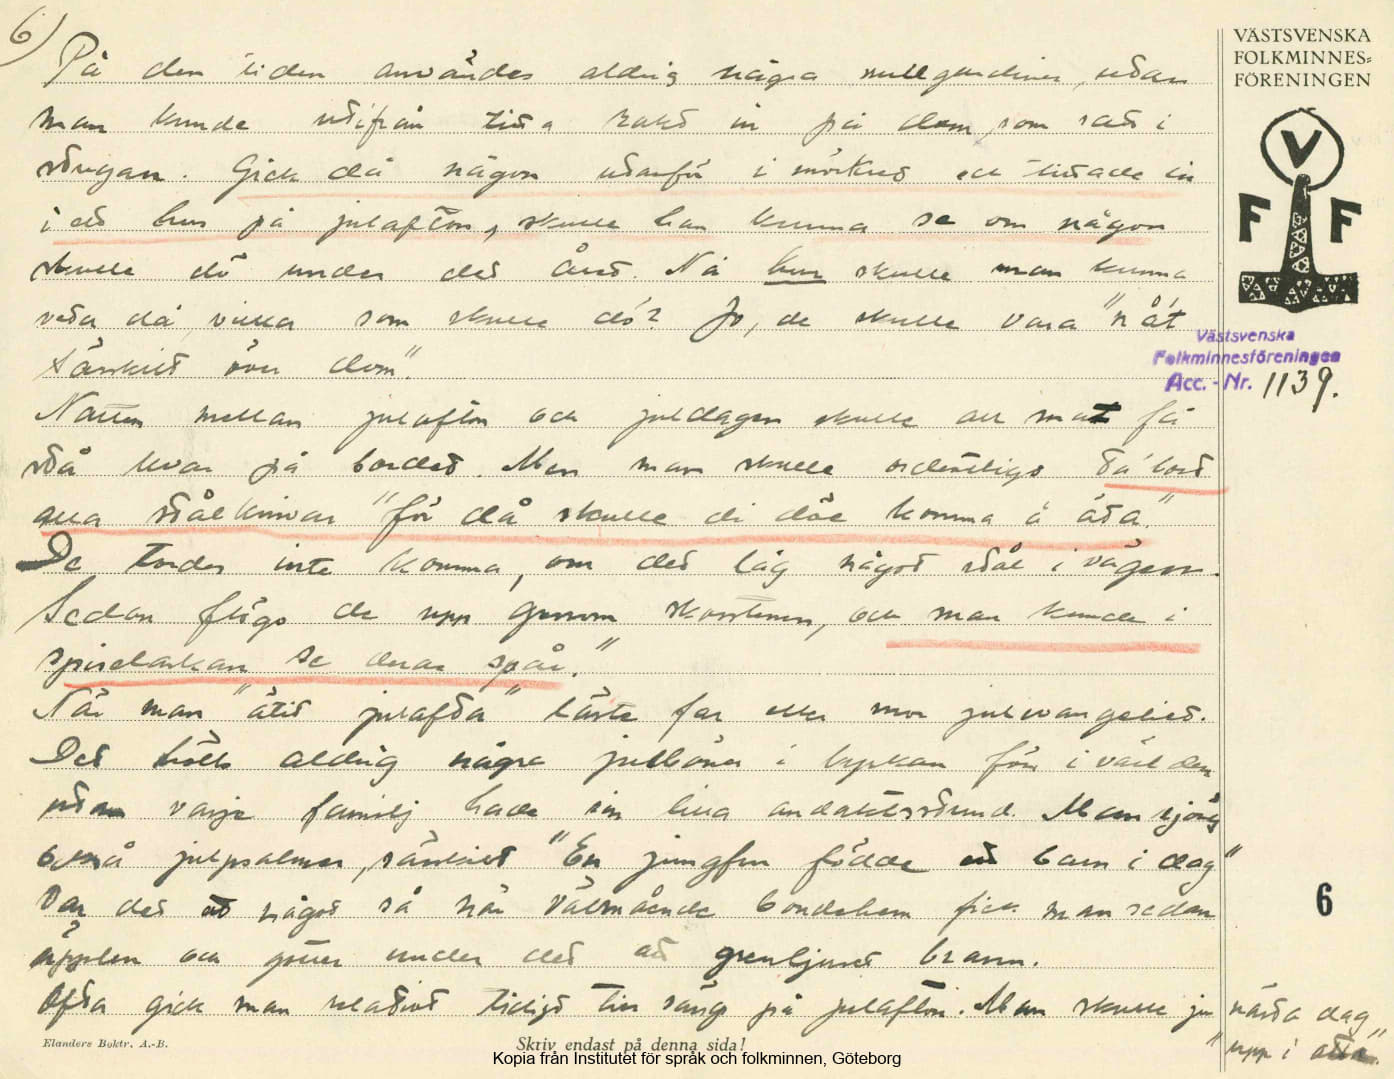 6)
VÄSTSVENSKA
FOLKMINNES-
FÖRENINGEN
V
F F
På den tiden användes aldrig några rullgardiner, utan
man kunde utifrån titta rakt in på dem som satt i
stugan. Gick då någon utanför i mörkret och tittade in
i ett hus på julafton, skulle han kunna se om någon
skulle dö under det året. Nå hur skulle man kunna
veta då, vilka som skulle dö? Jo, de skulle vara "nåt
särskilt över dom".
Natten mellan julafton och juldagen skulle all mat få
stå kvar på bordet. Men man skulle ordentligt ta bort
alla stålknivar "för då skulle di döe komma å äta."
De tordes inte komma, om det låg något stål i vägen.
Sedan flögo de upp genom skorstenen, och man kunde i
spiselaskan se deras spår."
När man "ätit julafta" läste far eller mor julevangeliet.
Det hölls aldrig några julböner i kyrkan förr i världen
utan varje familj hade sin lilla andaktsstund. Man sjöng
också julpsalmer, särskilt "En jungfru födde ett barn i dag"
Var det ett något så när välmående bondehem fick man sedan
äpplen och götter under det att grenljuset brann.
Ofta gick man relativt tidigt till sängs på julafton. Man skulle ju
nästa dag
"upp i otta".
Västsvenska
Folkminnesföreningen
Acc. - Nr. 1139.
6
Elanders Boktr. A.-B.
Skriv endast på denna sida!
Kopia från Institutet för språk och folkminnen, Göteborg